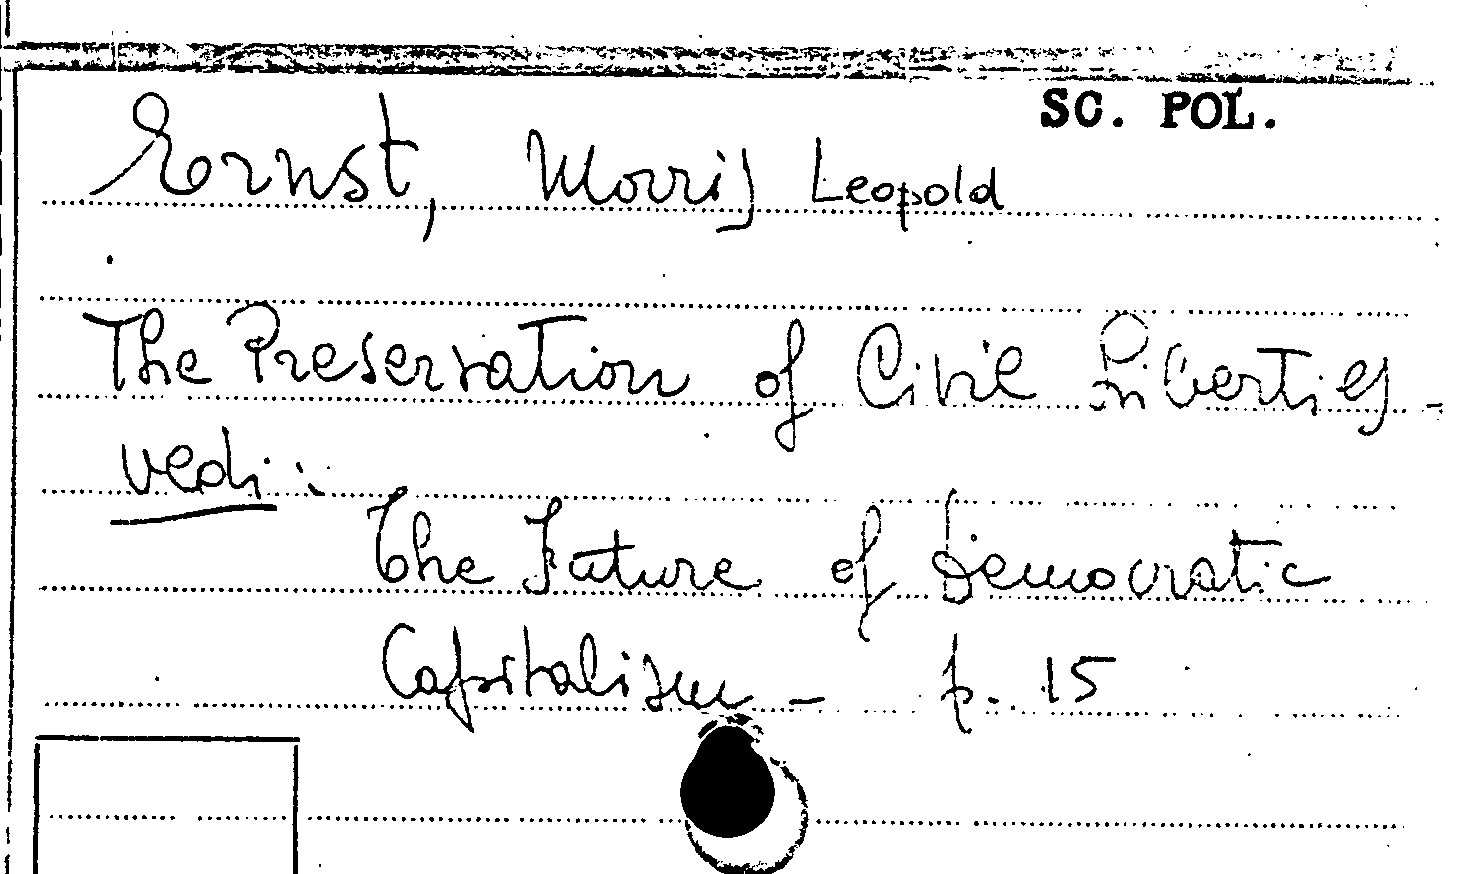 SC. POL.
Ernst, Morris Leopold
The Preservation of Civil Liberties -
vedi:
The Future of Democratic
Capitalism - p. 15